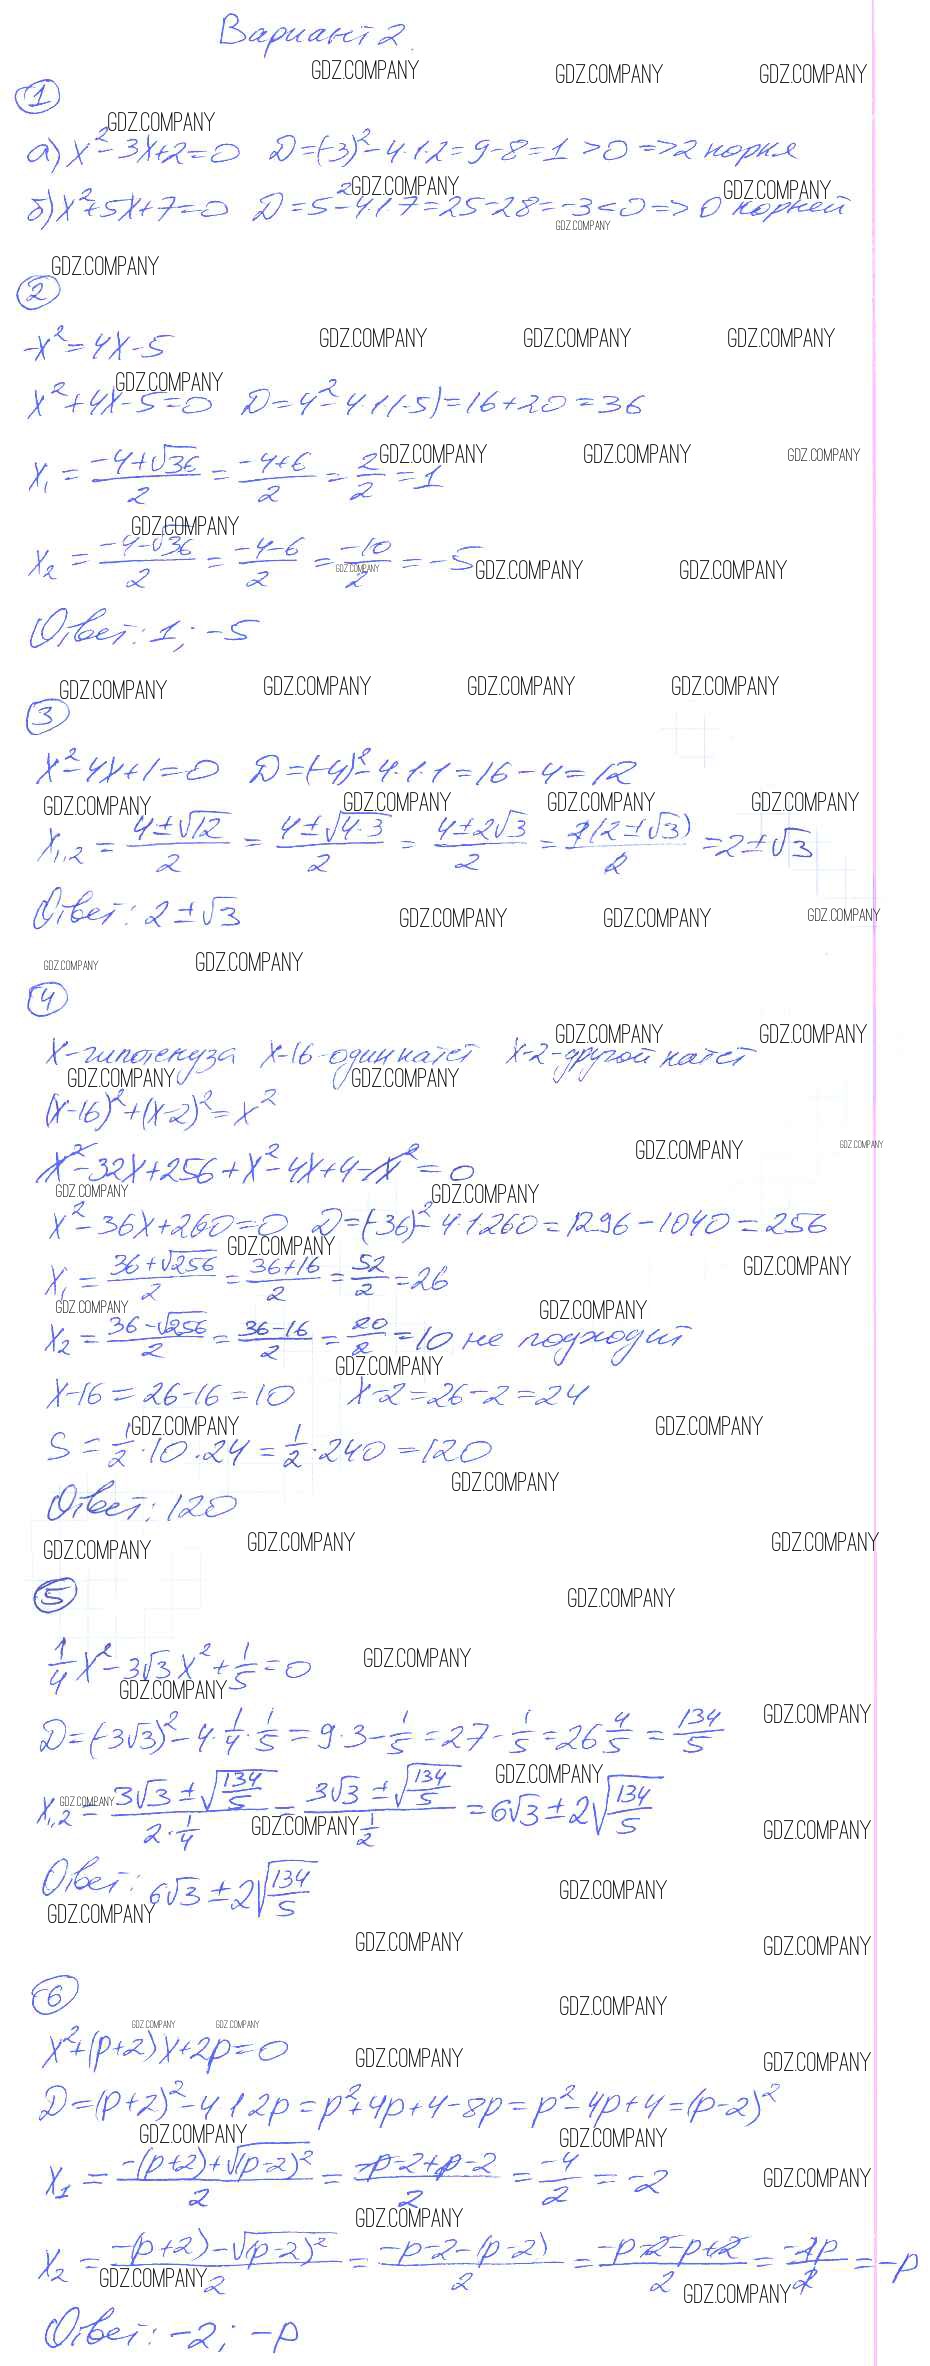 Вариант 2.
1
а) x² - 3x + 2 = 0   D = (-3)² - 4·1·2 = 9 - 8 = 1 > 0 => 2 корня
б) x² + 5x + 7 = 0   D = 5² - 4·1·7 = 25 - 28 = -3 < 0 => 0 корней
2
-x² = 4x - 5
x² + 4x - 5 = 0   D = 4² - 4·1·(-5) = 16 + 20 = 36
x₁ = (-4+√36)/2 = (-4+6)/2 = 2/2 = 1
x₂ = (-4-√36)/2 = (-4-6)/2 = -10/2 = -5
Ответ: 1; -5
3
x² - 4x + 1 = 0   D = (-4)² - 4·1·1 = 16 - 4 = 12
x₁,₂ = (4±√12)/2 = (4±√(4·3))/2 = (4±2√3)/2 = 2(2±√3)/2 = 2±√3
Ответ: 2±√3
4
x - гипотенуза   x-16 - один катет   x-2 - другой катет
(x-16)² + (x-2)² = x²
x² - 32x + 256 + x² - 4x + 4 - x² = 0
x² - 36x + 260 = 0   D = (-36)² - 4·1·260 = 1296 - 1040 = 256
x₁ = (36+√256)/2 = (36+16)/2 = 52/2 = 26
x₂ = (36-√256)/2 = (36-16)/2 = 20/2 = 10 не подходит
x-16 = 26-16 = 10   x-2 = 26-2 = 24
S = 1/2·10·24 = 1/2·240 = 120
Ответ: 120
5
1/4 x² - 3√3 x² + 1/5 = 0
D = (-3√3)² - 4·1/4·1/5 = 9·3 - 1/5 = 27 - 1/5 = 26 4/5 = 134/5
x₁,₂ = (3√3±√(134/5))/(2·1/4) = (3√3±√(134/5))/(1/2) = 6√3±2√(134/5)
Ответ: 6√3±2√(134/5)
6
x² + (p+2)x + 2p = 0
D = (p+2)² - 4·1·2p = p² + 4p + 4 - 8p = p² - 4p + 4 = (p-2)²
x₁ = (-(p+2)+√(p-2)²)/2 = (-p-2+p-2)/2 = -4/2 = -2
x₂ = (-(p+2)-√(p-2)²)/2 = (-p-2-(p-2))/2 = (-p-2-p+2)/2 = -2p/2 = -p
Ответ: -2; -p
GDZ.COMPANY